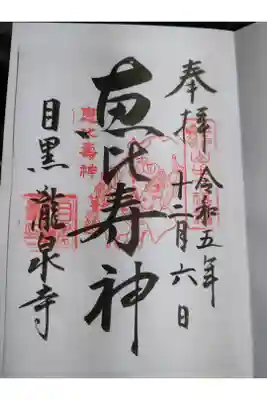 奉拝
令和五年
十二月六日
恵比寿神
恵比寿神
目黒瀧泉寺